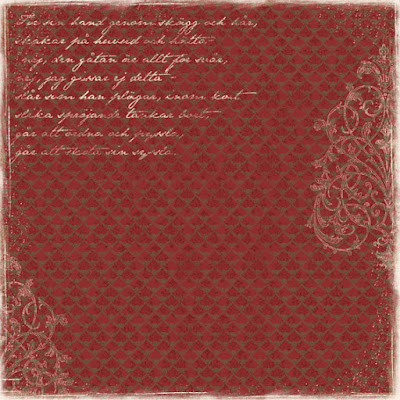 För sin hand genom skägg och hår,
skakar på huvud och hätta -
nej, den gåtan är allt för svår,
nej, jag gissar ej detta -
slår som han plägar, inom kort
slika spörjande tankar bort,
går att ordna och pyssla,
går att sköta sin syssla.